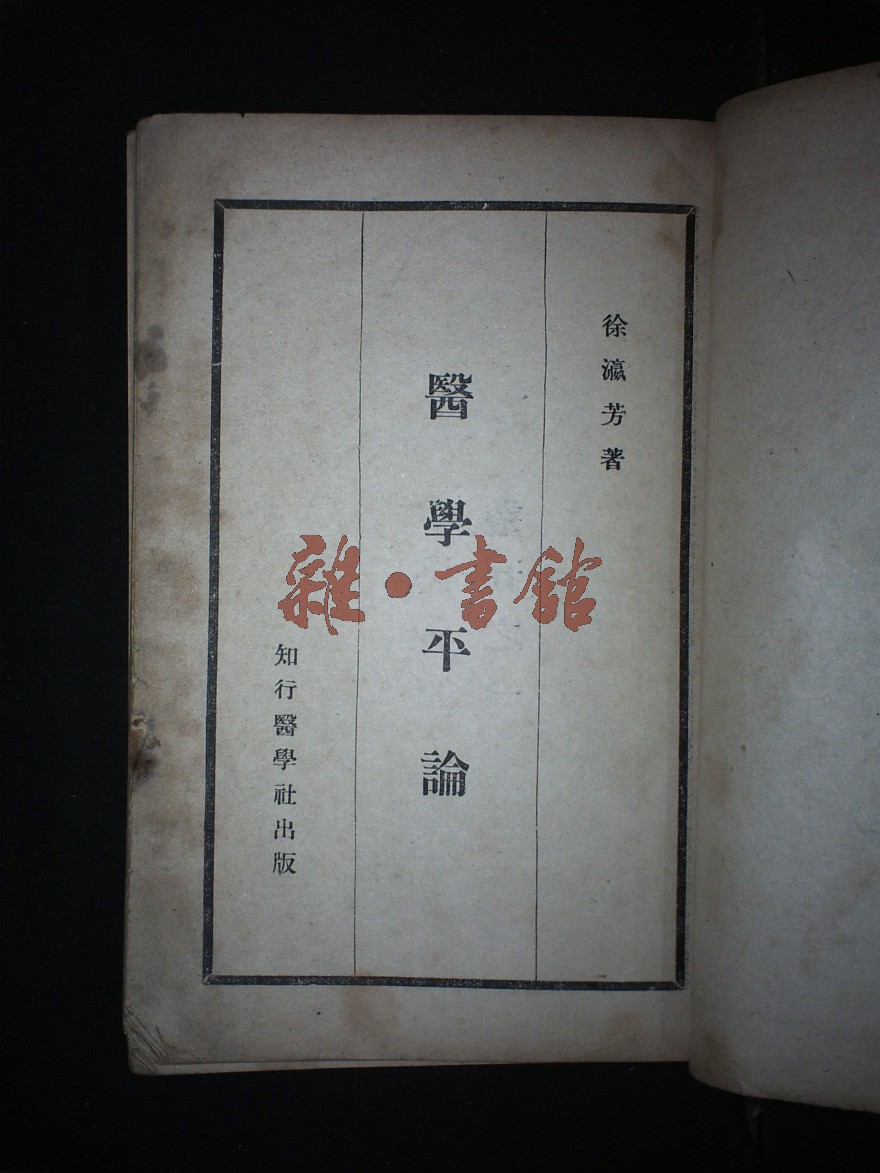 徐瀛芳著
醫學平論
知行醫學社出版
雜·書館